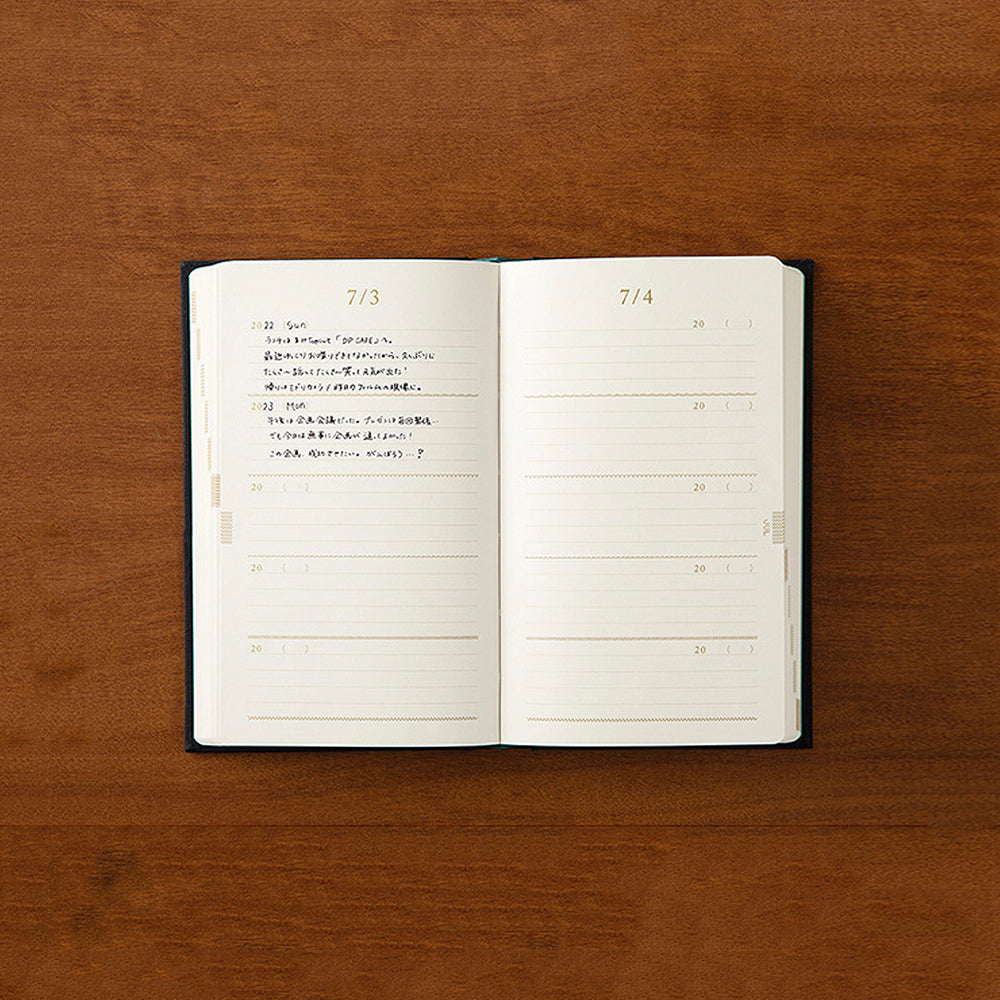 7/3
2022 (Sun)
最近ゆっくりお喋りできてなかったから、久しぶりに
たくさん話してたくさん笑って元気が出た!
帰りはミドリカメラ / 昨日のフィルムの現像に。
2023 (Mon)
午後は企画会議だった。プレゼンは毎回緊張…
でも今日は無事に企画が通ってよかった!
この企画、成功させたい。がんばろう…?
20 ( )
20 ( )
20 ( )
7/4
20 ( )
20 ( )
20 ( )
JUL
20 ( )
20 ( )